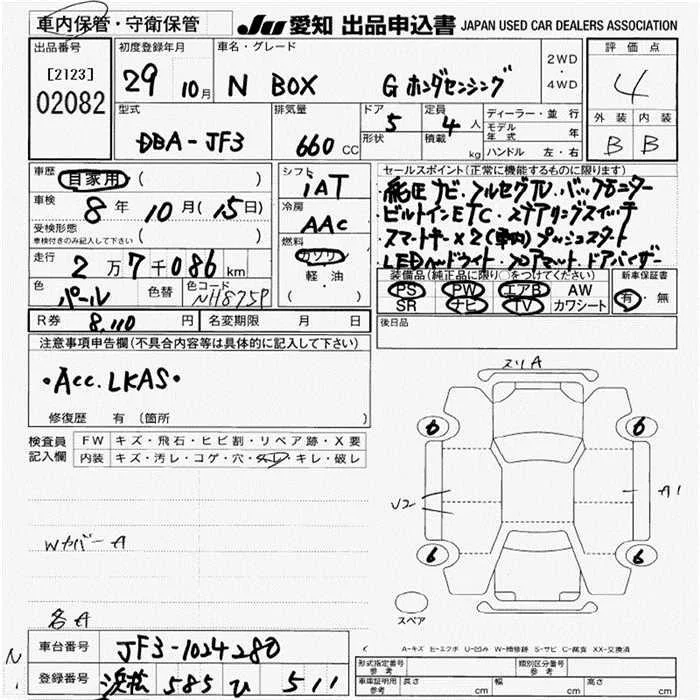 車内保管・守衛保管
JU 愛知 出品申込書 JAPAN USED CAR DEALERS ASSOCIATION
出品番号
[2123]
02082
初度登録年月
29 10月
車名・グレード
N BOX G ホンダセンシング
2WD
・
4WD
評価点
4
外装 内装
B B
型式
DBA-JF3
排気量
660 CC
ドア
5
形状
定員
4 人
積載
kg
ディーラー・並行
モデル年式 年
ハンドル 左・右
車歴
自家用 ( )
車検
8年 10月(15日)
受検形態
車検付きのみ記入して下さい ( )
走行
2万7千086km
色
パール
色替
色コード
NH875P
シフト
iAT
冷房
AAC
燃料
ガソリン
軽・油
( )
セールスポイント(正常に機能するものに限ります)
・純正ナビ・フルセグTV・バックモニター
・ビルトインETC・ステアリングスイッチ
・スマートキー×2(車内)プッシュスタート
・LEDヘッドライト・フロアマット・ドアバイザー
装備品(純正品に限り○をつけてください)
PS PW エアB AW
SR ナビ TV カワシート
新車保証書
有・無
R券 8,110 円
名変期限 月 日
後日品
注意事項申告欄(不具合内容等は具体的に記入して下さい)
・Acc. LKAS・
修復歴 有 (箇所 )
検査員
記入欄
FW キズ・飛石・ヒビ割・リペア跡・X要
内装 キズ・汚レ・コゲ・穴・スレ・キレ・破レ
スリA
6 6
U2
A1
6 6
Wカバー A
各A
スペア
車台番号 JF3-1024280
登録番号 浜松 585 ひ 511
A-キズ E-エクボ U-凹み W-補修跡 S-サビ C-腐食 XX-交換済
形式指定番号
参考
類別区分番号
参考
車庫証明用
参考
長さ cm 幅 cm 高さ cm